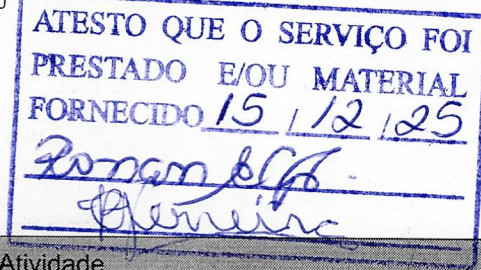 ATESTO QUE O SERVIÇO FOI
PRESTADO E/OU MATERIAL
FORNECIDO 15 / 12 / 25
Ronan
Ferreira
Atividade